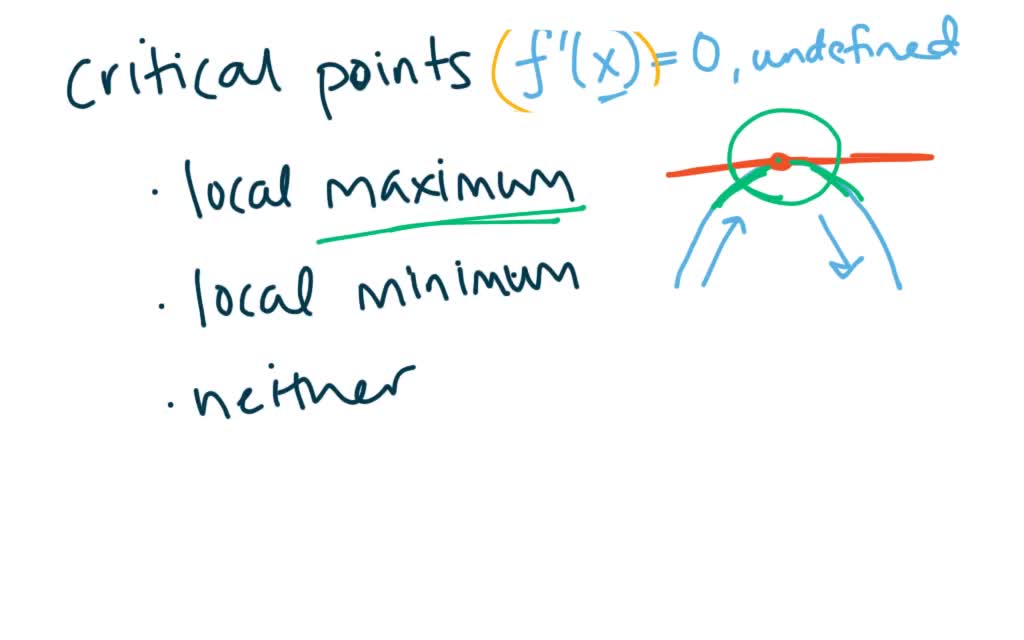 critical points (f'(x)) = 0, undefined
· local maximum
· local minimum
· neither